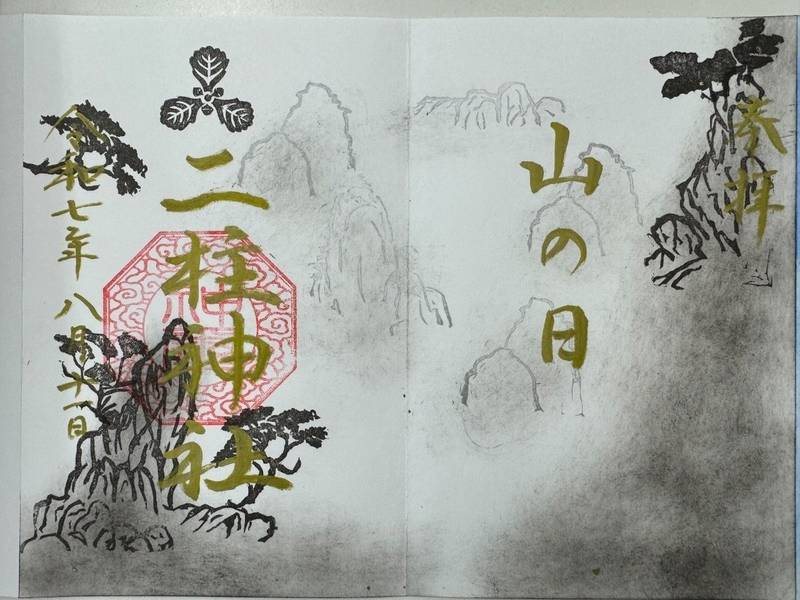 参拝
山の日
二柱神社
令和七年八月十一日